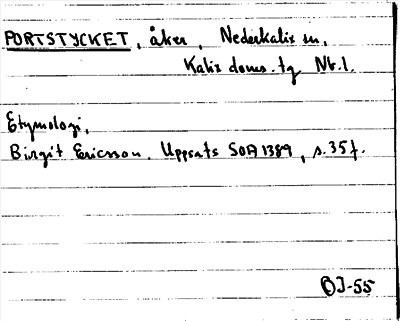 PORTSTYCKET, åker, Nederkalix sn,
Kalix doms. tg Nb.l.
Etymologi,
Birgit Ericsson. Uppsats SOA 1389, s. 35f.
BJ-55